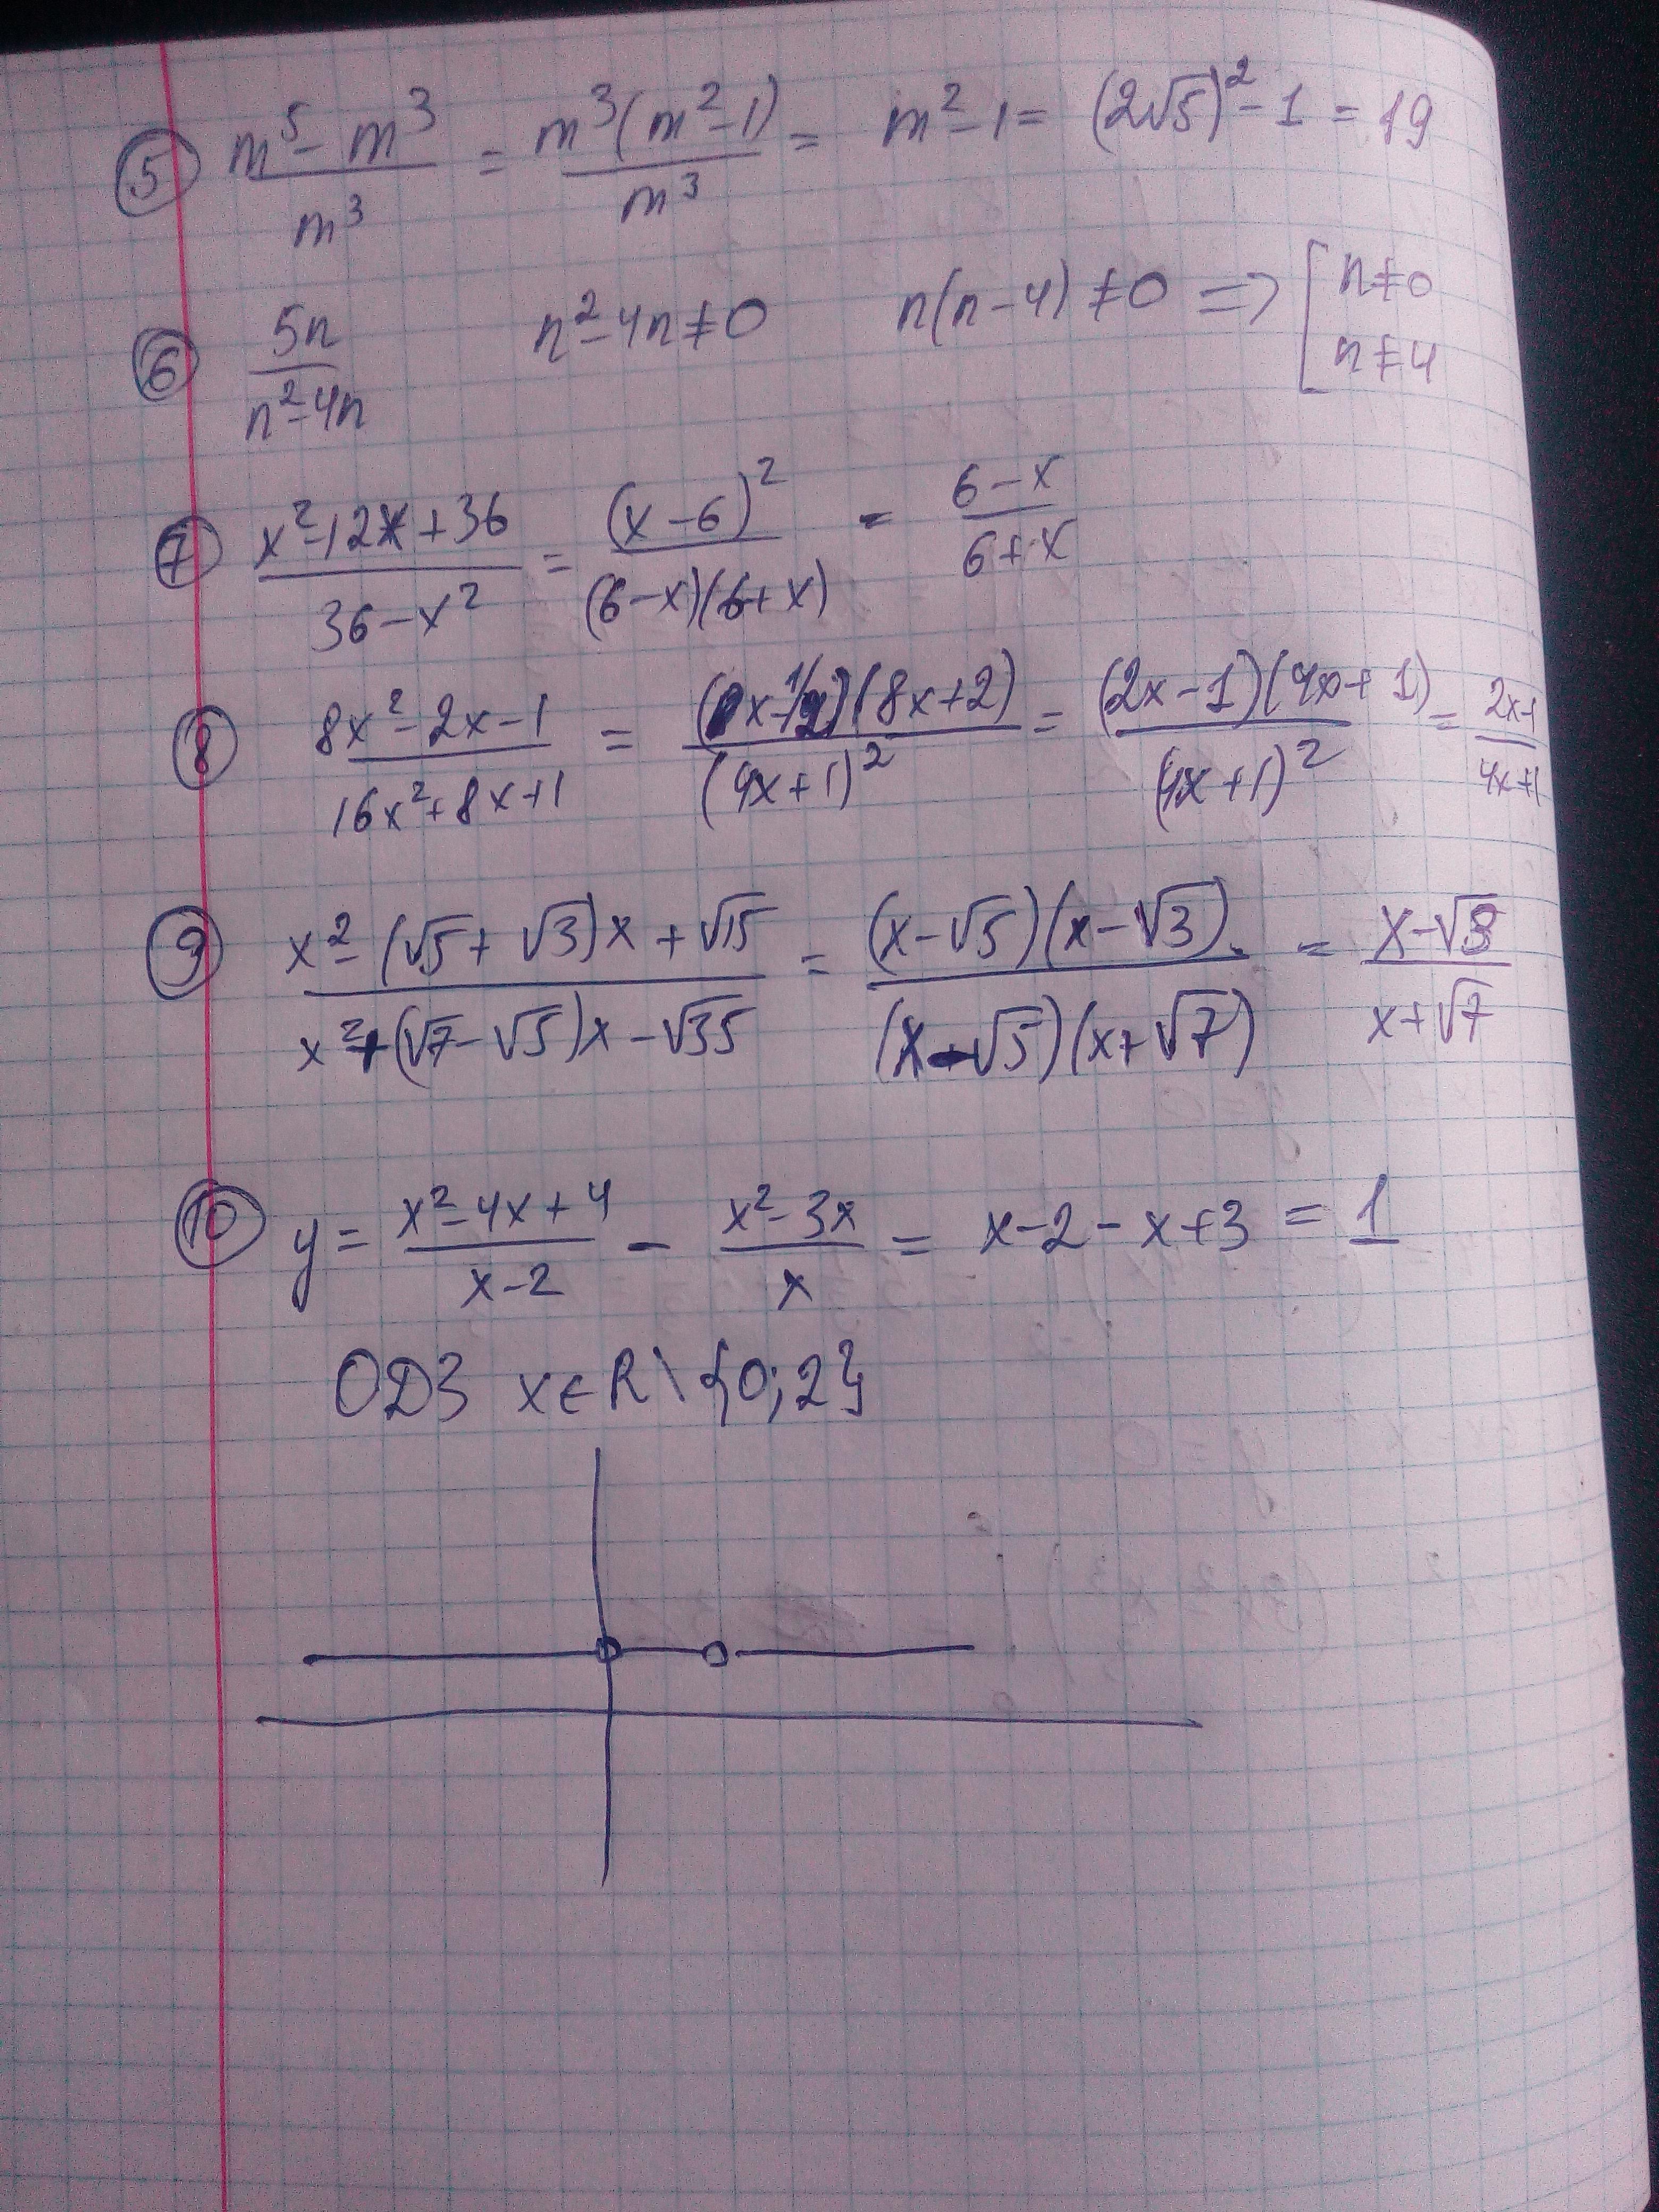 ⑤ (m⁵ - m³)/m³ = m³(m² - 1)/m³ = m² - 1 = (2√5)² - 1 = 19
⑥ 5n/(n² - 4n) n² - 4n ≠ 0 n(n - 4) ≠ 0 => [ n ≠ 0 n ≠ 4
⑦ (x² - 12x + 36)/(36 - x²) = (x - 6)²/((6 - x)(6 + x)) = (6 - x)/(6 + x)
⑧ (8x² - 2x - 1)/(16x² + 8x + 1) = (x - 1/2)(8x + 2)/(4x + 1)² = (2x - 1)(4x + 1)/(4x + 1)² = (2x - 1)/(4x + 1)
⑨ (x² - (√5 + √3)x + √15)/(x² + (√7 - √5)x - √35) = (x - √5)(x - √3)/((x - √5)(x + √7)) = (x - √3)/(x + √7)
⑩ y = (x² - 4x + 4)/(x - 2) - (x² - 3x)/x = x - 2 - x + 3 = 1
ОДЗ x ∈ R \ {0; 2}